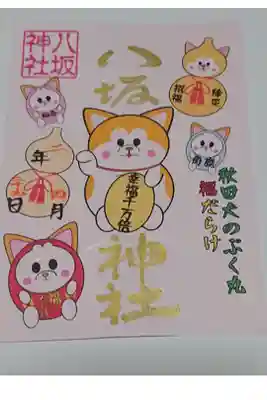 八坂
神社
八坂
神社
幸福千万倍
招福
年
月
日
秋田犬のぶく丸
福だらけ
福